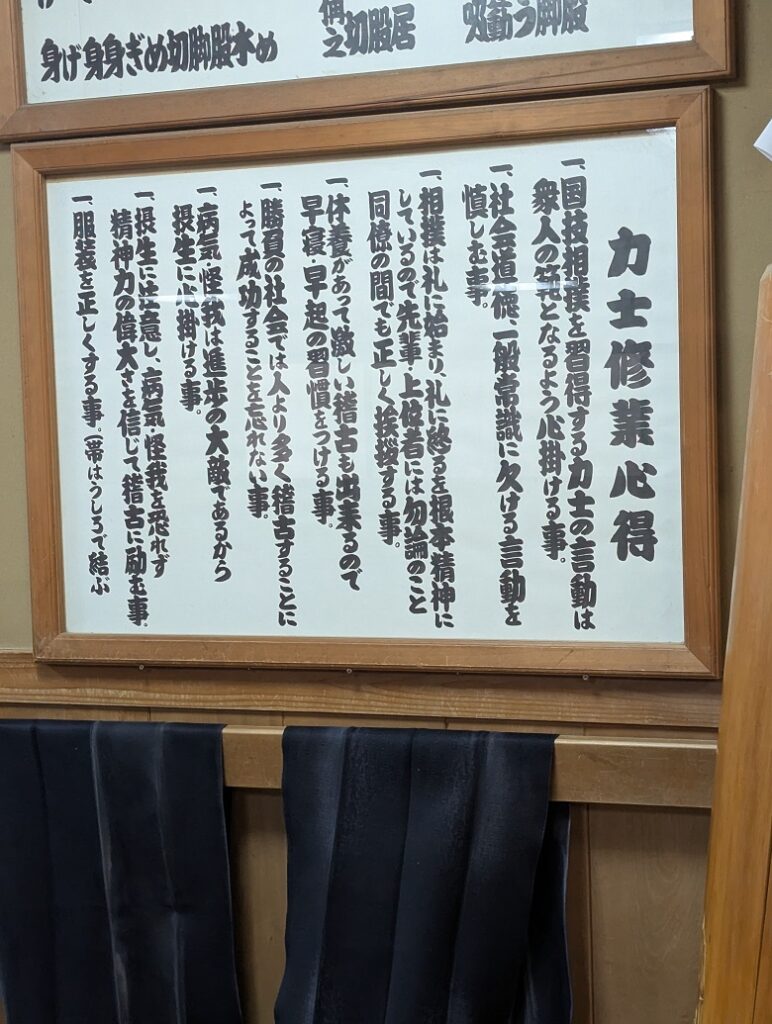 身げ身身ぎめ切脚股水め
之切股居
う脚股
力士修業心得
一、国技相撲を習得する力士の言動は
衆人の範となるよう心掛ける事。
一、社会道徳、一般常識に欠ける言動を
慎しむ事。
一、相撲は礼に始まり、礼に終るを根本精神に
しているので先輩・上位者には勿論のこと
同僚の間でも正しく挨拶する事。
一、休養があって激しい稽古も出来るので
早寝・早起の習慣をつける事。
一、勝負の社会では人より多く稽古することに
よって成功することを忘れない事。
一、病気・怪我は進歩の大敵であるから
摂生に心掛ける事。
一、摂生に注意し、病気・怪我を恐れず
精神力の偉大さを信じて稽古に励む事。
一、服装を正しくする事。(帯はうしろで結ぶ